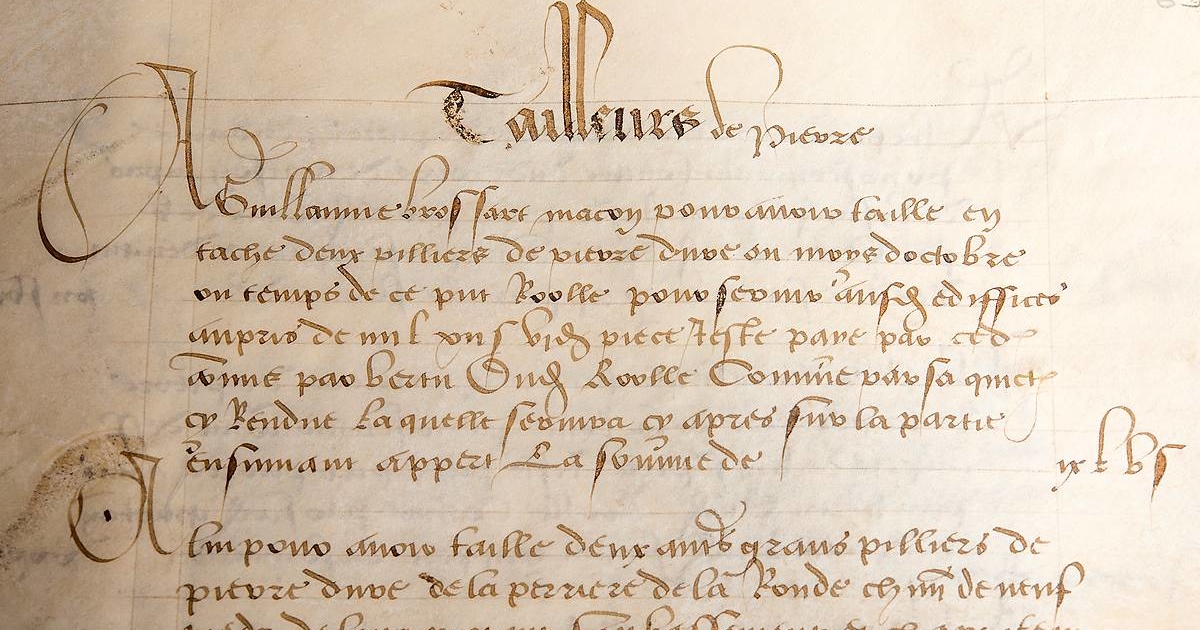 Tailleurs de pierre
A Guillaume brossart macon pour avoir taille en
tache deux pilliers de pierre dure ou moys doctobre
ou temps de ce pnt Roolle pour servir ausd ediffices
au pris de piece Reste paye par ced
comme par vertu dud Roolle Comme par sa quict
cy Rendue Laquelle servira cy apres sur la partie
ensuivant appert La somme de ix l v s
A luy pour avoir taille deux aultres grans pilliers de
pierre dure de la perriere de la Ronde de neuf